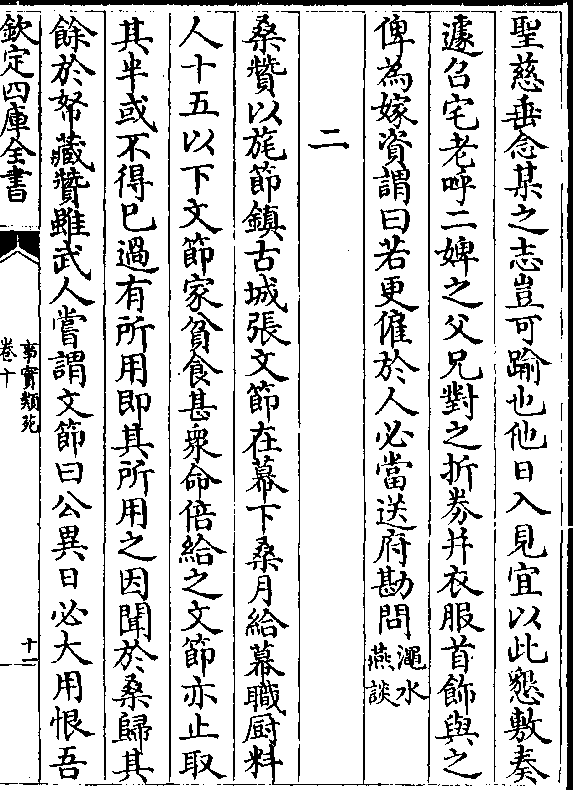 聖慈垂念某之志豈可踰也他日入見宜以此懇敷奏
遽召宅老呼二婢之父兄對之折劵并衣服首飾與之
俾為嫁資謂曰若更僱於人必當送府勘問澠水燕談
二
桑贊以旄節鎮古城張文節在幕下桑月給幕職厨料
人十五以下文節家貧食甚衆命倍給之文節亦止取
其半或不得已過有所用即其所用之因聞於桑歸其
餘於帑藏贊雖武人嘗謂文節曰公異日必大用恨吾
欽定四庫全書
事實類苑
卷十
十一